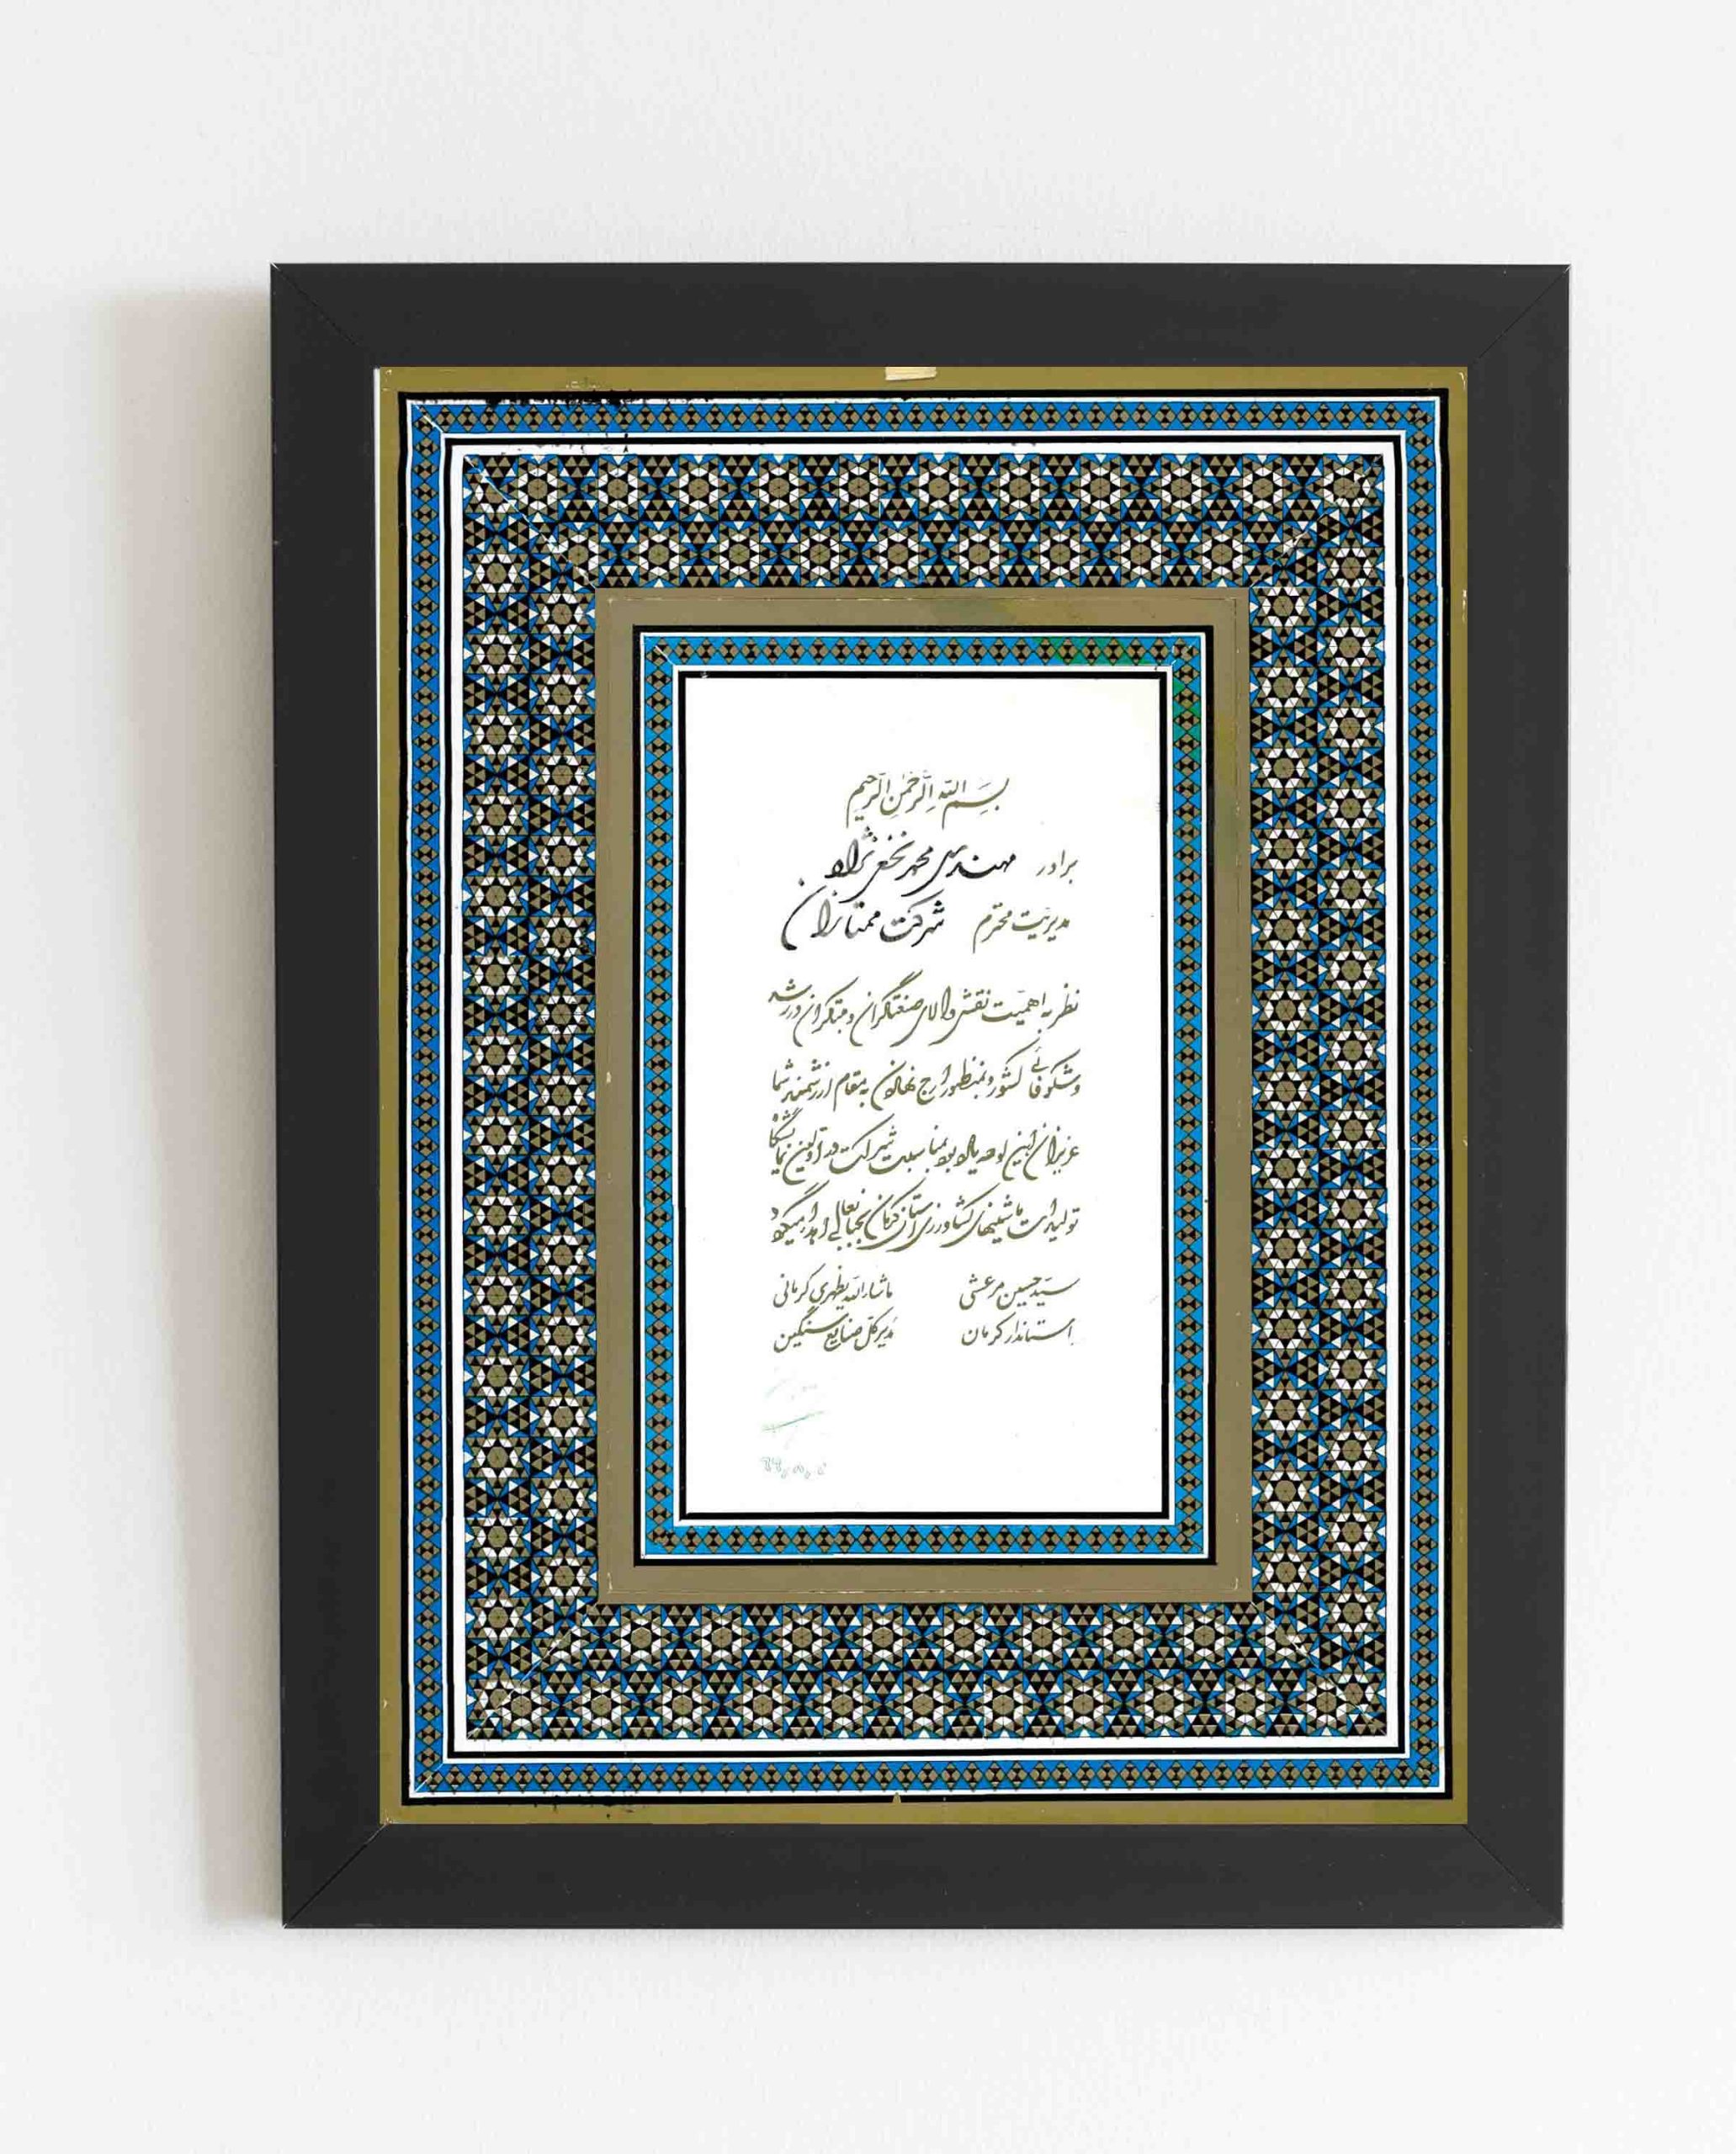 بِسمِ اللهِ الرَّحمٰنِ الرَّحیمِ
برادر مهندس محمد نخعی نژاد
مدیریّت محترم شرکت ممتازان
نظر به اهمیّت نقش والای صنعتگران و مبتکران در رشد
و شکوفائی کشور و بمنظور ارج نهادن به مقام ارزشمند شما
عزیزان این لوحه یادبود بمناسبت شرکت در اولین نمایشگاه
تولیدات ماشینهای کشاورزی استان کرمان بجنابعالی اهداء میگردد
سیّد حسین مرعشی ماشاءالله کرمانی
استاندار کرمان مدیر کل صنایع سنگین